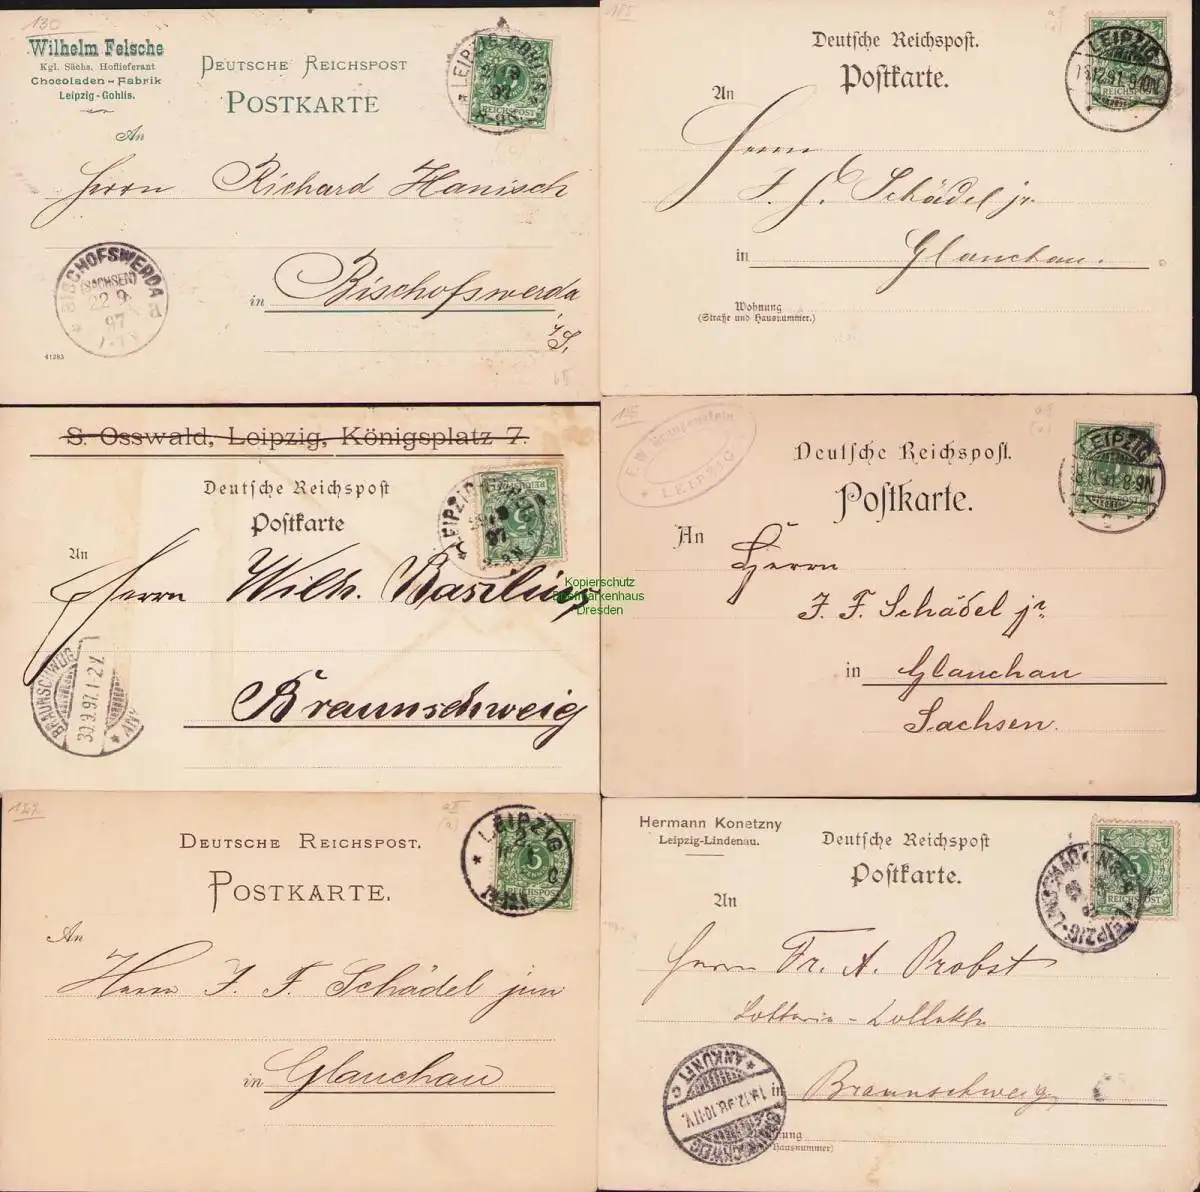 130
Wilhelm Felsche
Kgl. Sächs. Hoflieferant
Chocoladen-Fabrik
Leipzig-Gohlis.
DEUTSCHE REICHSPOST
POSTKARTE
LEIPZIG-GOHLIS
REICHSPOST
An
Herrn Richard Hanisch
in Bischofswerda
i/S.
BISCHOFSWERDA
(SACHSEN)
22 9
97
41293
Deutsche Reichspost.
Postkarte.
LEIPZIG
REICHSPOST
An
Herrn
J. F. Schädel jr.
in Glauchau.
Wohnung
(Straße und Hausnummer.)
S. Osswald, Leipzig, Königsplatz 7.
Deutsche Reichspost
Postkarte
An
Herrn Wilh. Basilius
Braunschweig
BRAUNSCHWEIG
30.9.97.1-2V.
Kopierschutz
Briefmarkenhaus
Dresden
LEIPZIG
Deutsche Reichspost.
Postkarte.
LEIPZIG
An Herrn
J. F. Schädel jr.
in Glauchau
Sachsen.
DEUTSCHE REICHSPOST.
POSTKARTE.
LEIPZIG
REICHSPOST
An
Herrn J. F. Schädel jun
in Glauchau
Hermann Konetzny
Leipzig-Lindenau.
Deutsche Reichspost
Postkarte.
REICHSPOST
An
Herrn Fr. A. Probst
Lotterie-Kollekte
in Braunschweig
ANKUNFT
BRAUNSCHWEIG
Hausnummer)